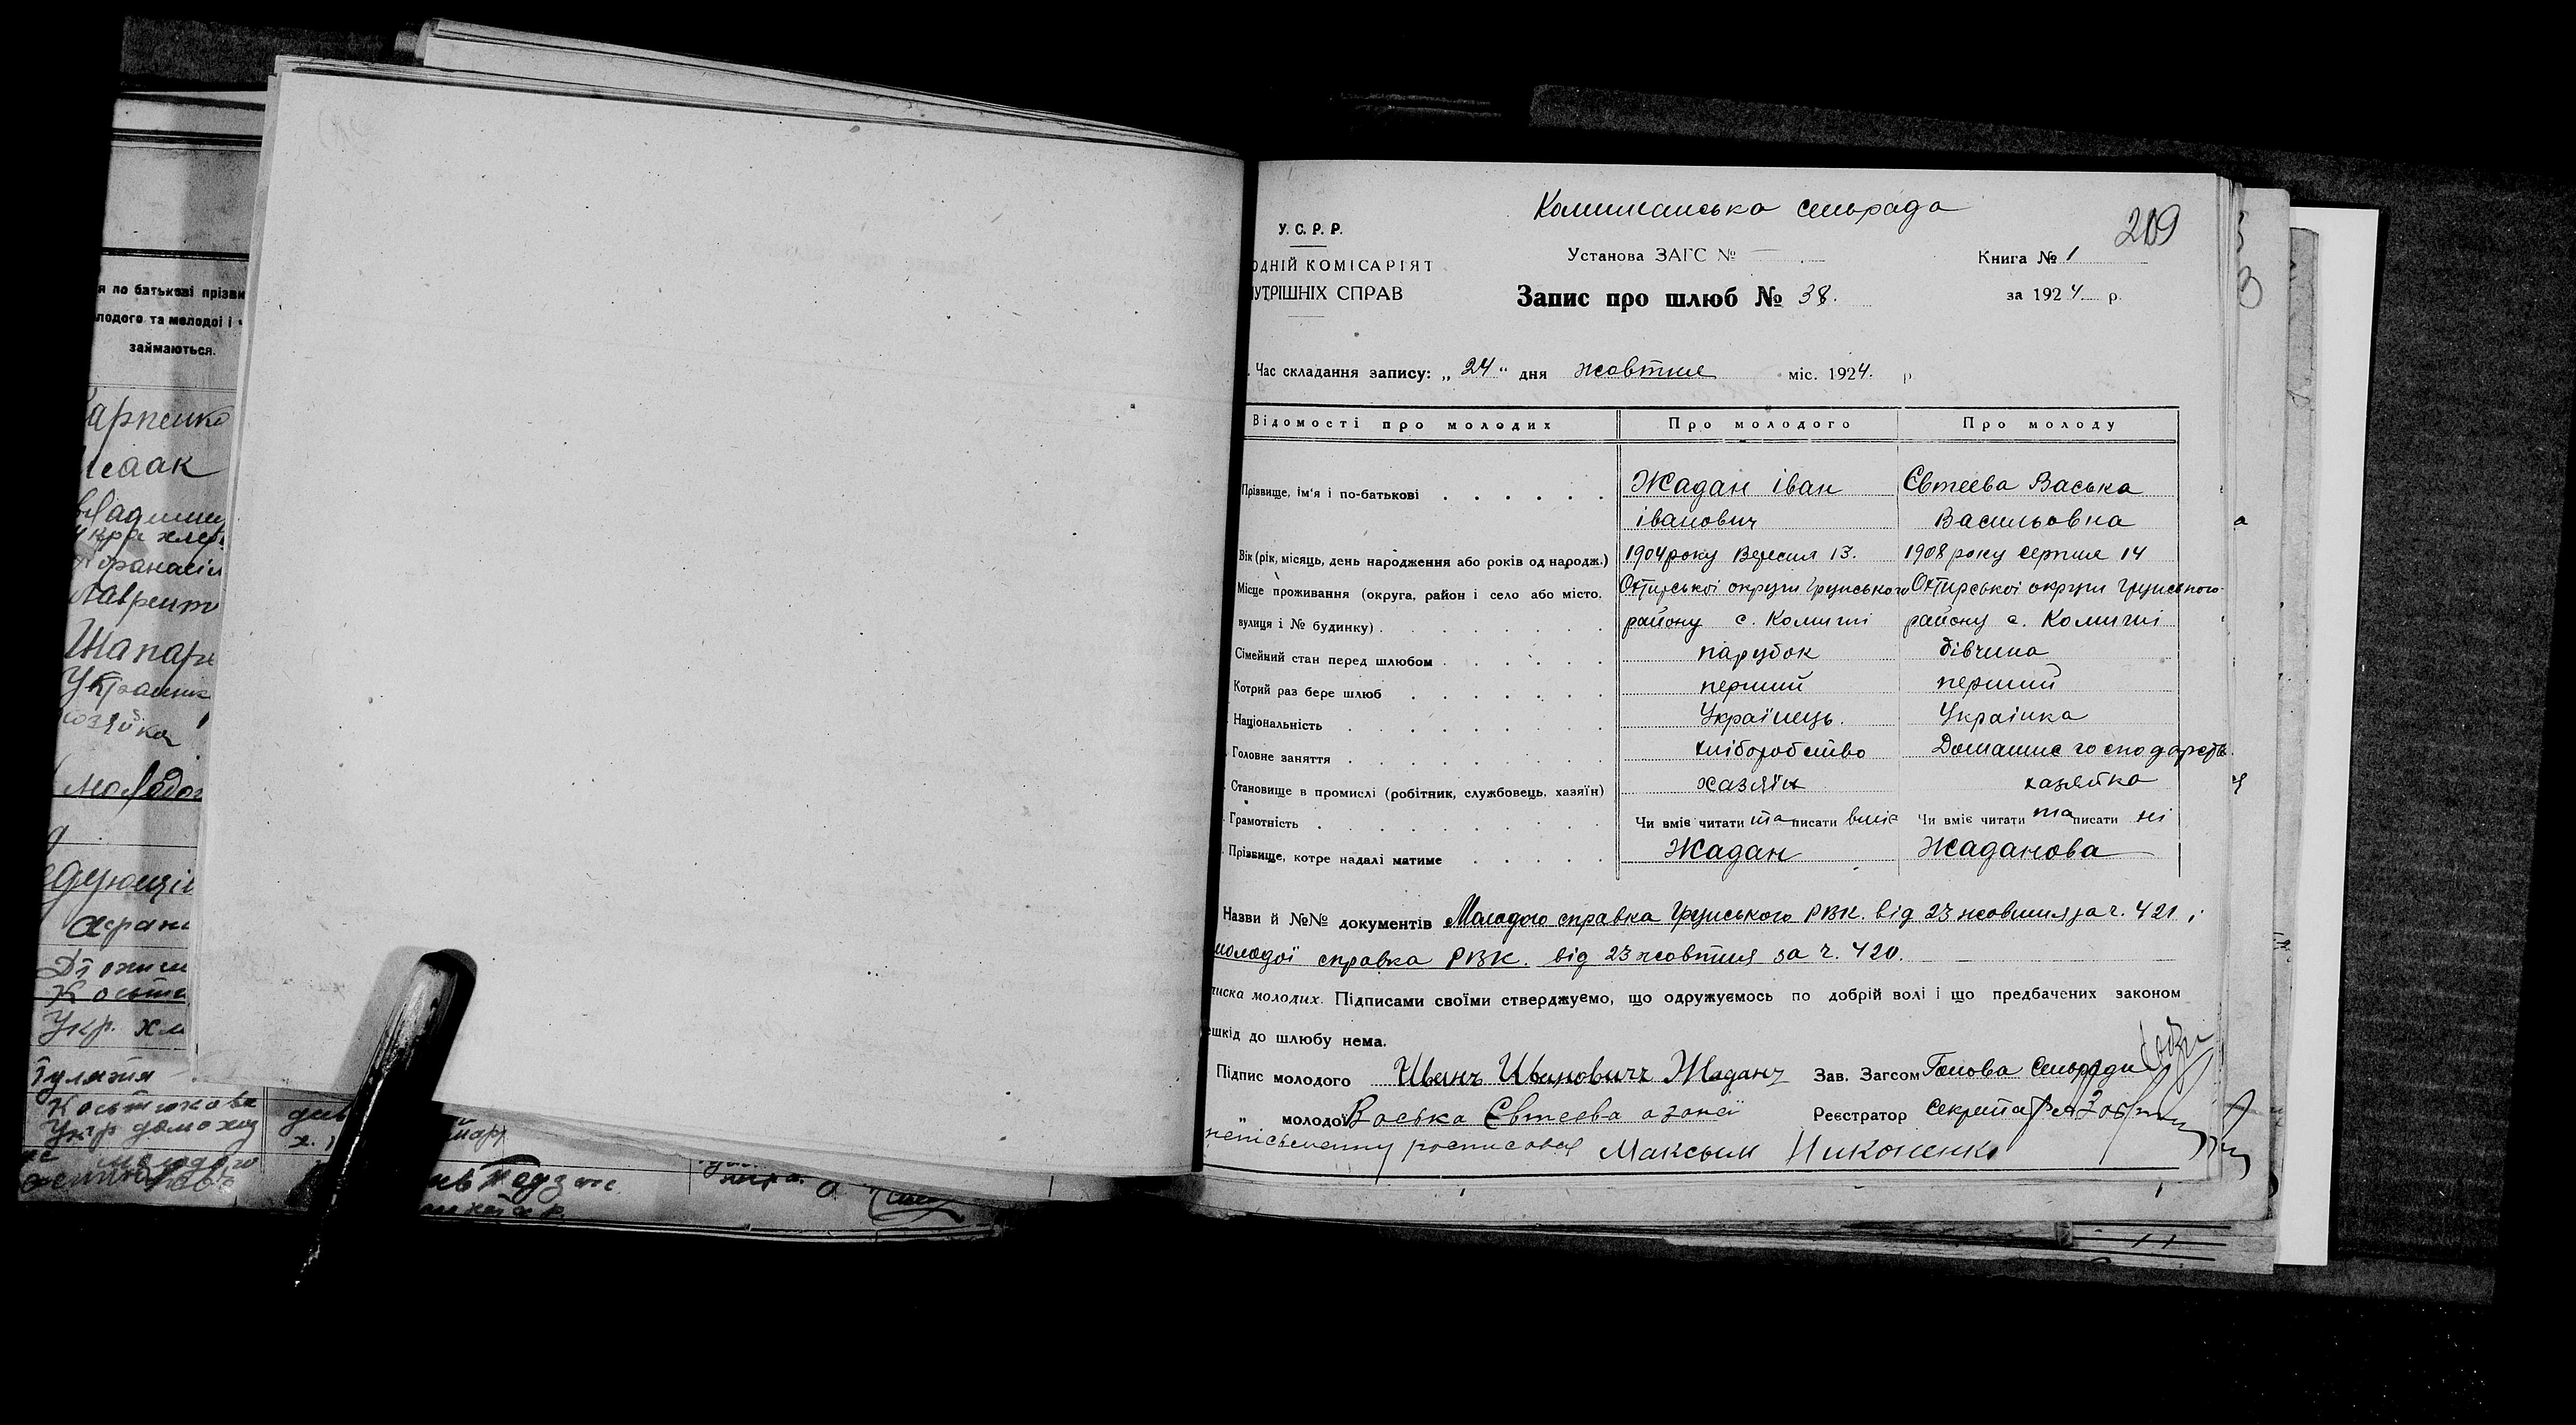 я по батькові прізви
лодого та молодої і ч
займаються.
арпенко
Исаак
Лаврент
Украинк
хозяйка
молодог
едующій
Укр. хл
Комишанська сільрада
209
У. С. Р. Р.
ОДНІЙ КОМІСАРІЯТ
УТРІШНІХ СПРАВ
Установа ЗАГС №
Книга № 1
Запис про шлюб № 38.
за 1924 р.
Час складання запису: „ 24 " дня жовтня міс. 1924. р
Відомості про молодих Про молодого Про молоду
Прізвище, ім'я і по-батькові Жадан іван Євтеєва Васька
іванович Васильовна
Вік (рік, місяць, день народження або років од народж.) 1904 року Вересня 13. 1908 року серпня 14
Місце проживання (округа, район і село або місто, Охтирської округи Грунського Охтирської округи Грунського
вулиця і № будинку) району с. Комиші району с. Комиші
Сімейний стан перед шлюбом парубок дівчина
Котрий раз бере шлюб перший перший
Національність Українець. Українка
Головне заняття хліборобство Домашнє господарств.
Становище в промислі (робітник, службовець, хазяїн) хазяїн хазяйка
Грамотність Чи вміє читати та писати вміє Чи вміє читати та писати ні
Прізвище, котре надалі матиме Жадан Жаданова
Назви й №№ документів Молодого справка Грунського РВК. від 23 жовтня за ч. 421 і
молодої справка РВК. від 23 жовтня за ч. 420.
писка молодих. Підписами своїми стверджуємо, що одружуємось по добрій волі і що предбачених законом
ешкід до шлюбу нема.
Підпис молодого Иванъ Ивановичъ Жаданъ Зав. Загсом Голова Сільради
„ молодої Васька Євтеєва а за неї Реєстратор секретар
неписьменну росписовся Максым Никоненко